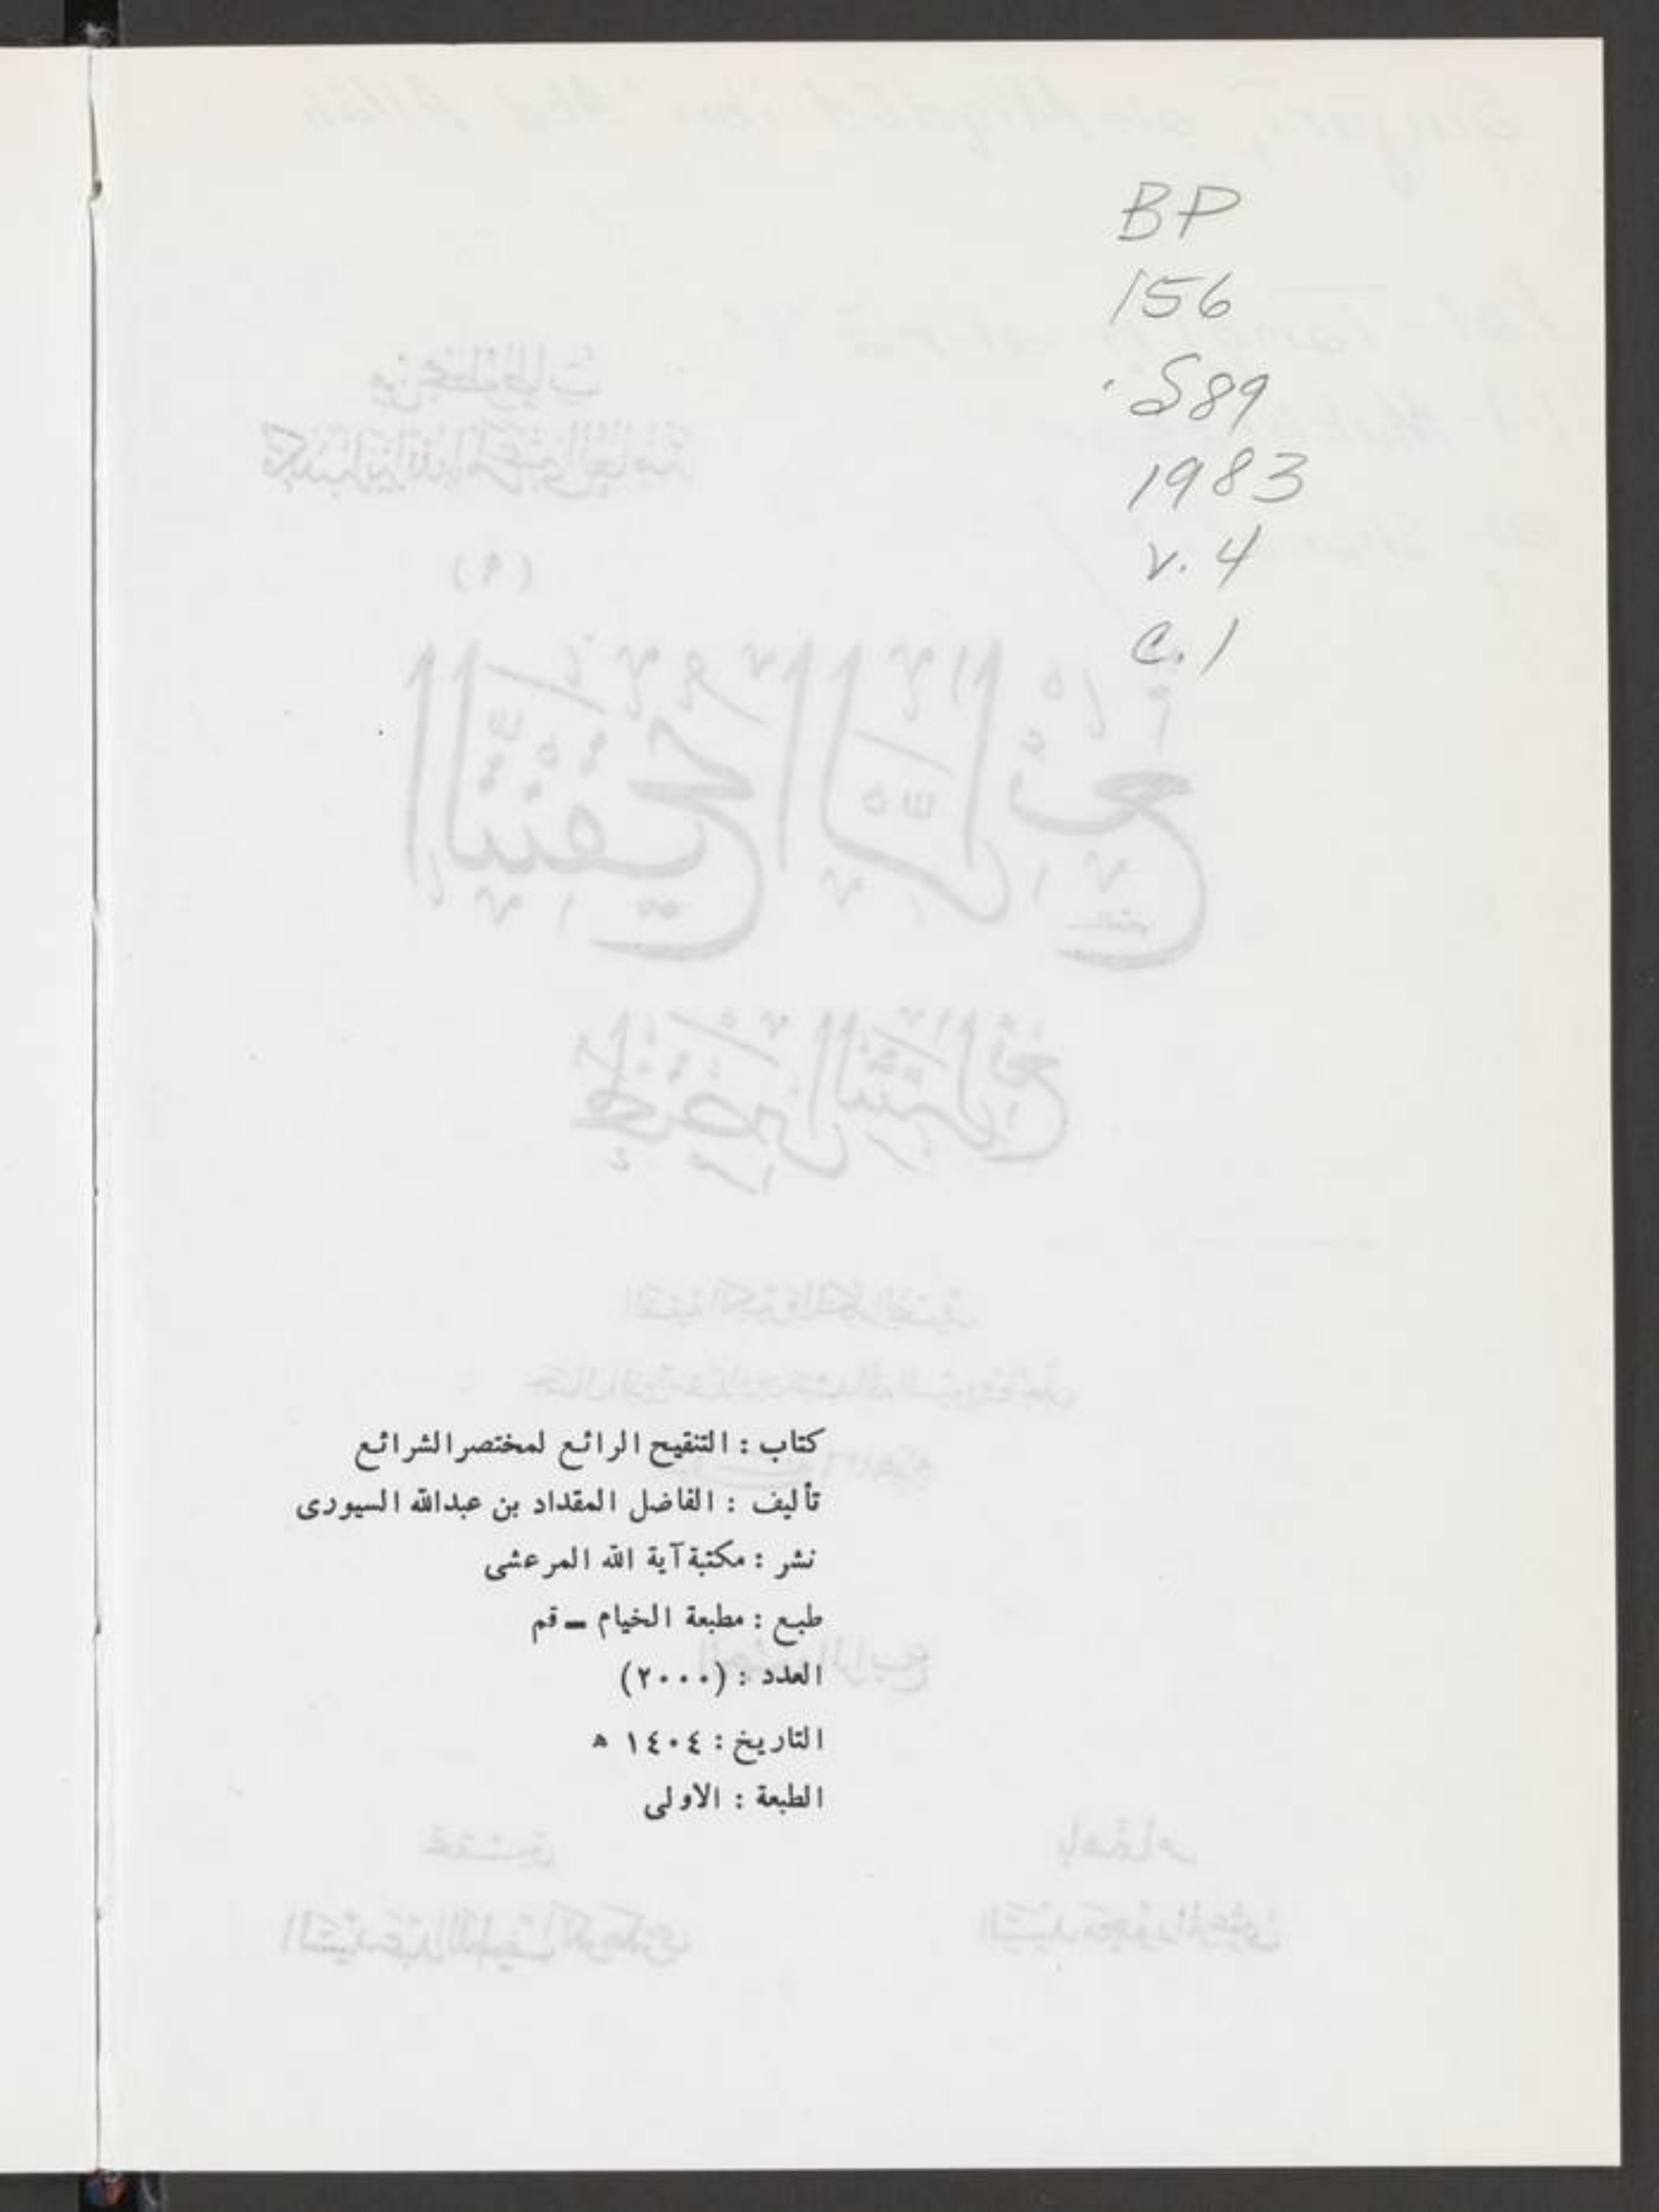 BP
156
.S89
1983
v. 4
c. 1
كتاب : التنقيح الرائع لمختصر الشرائع
تأليف : الفاضل المقداد بن عبدالله السيورى
نشر : مكتبة آية الله المرعشى
طبع : مطبعة الخيام ــ قم
العدد : (٢٠٠٠)
التاريخ : ١٤٠٤ ه
الطبعة : الاولى